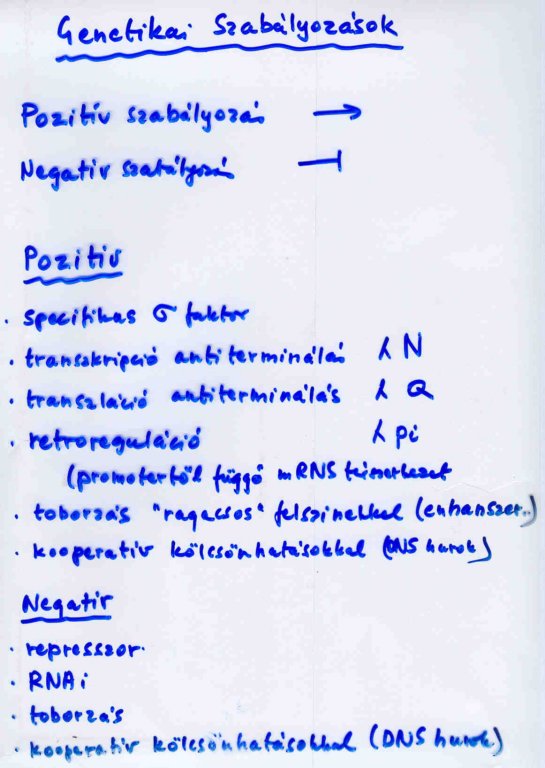 Genetikai Szabályozások
Pozitív szabályozás →
Negatív szabályozás ⊣
Pozitív
· specifikus σ faktor
· transzkripció antiterminálás λ N
· transzláció antiterminálás λ Q
· retroreguláció λ pi
(promotertől függő mRNS
· toborzás "ragacsos" felszínekkel (enhanszer..)
· kooperatív kölcsönhatásokkal (DNS hurok)
Negatív
· represszor
· RNAi
· toborzás
· kooperatív kölcsönhatásokkal (DNS hurok)